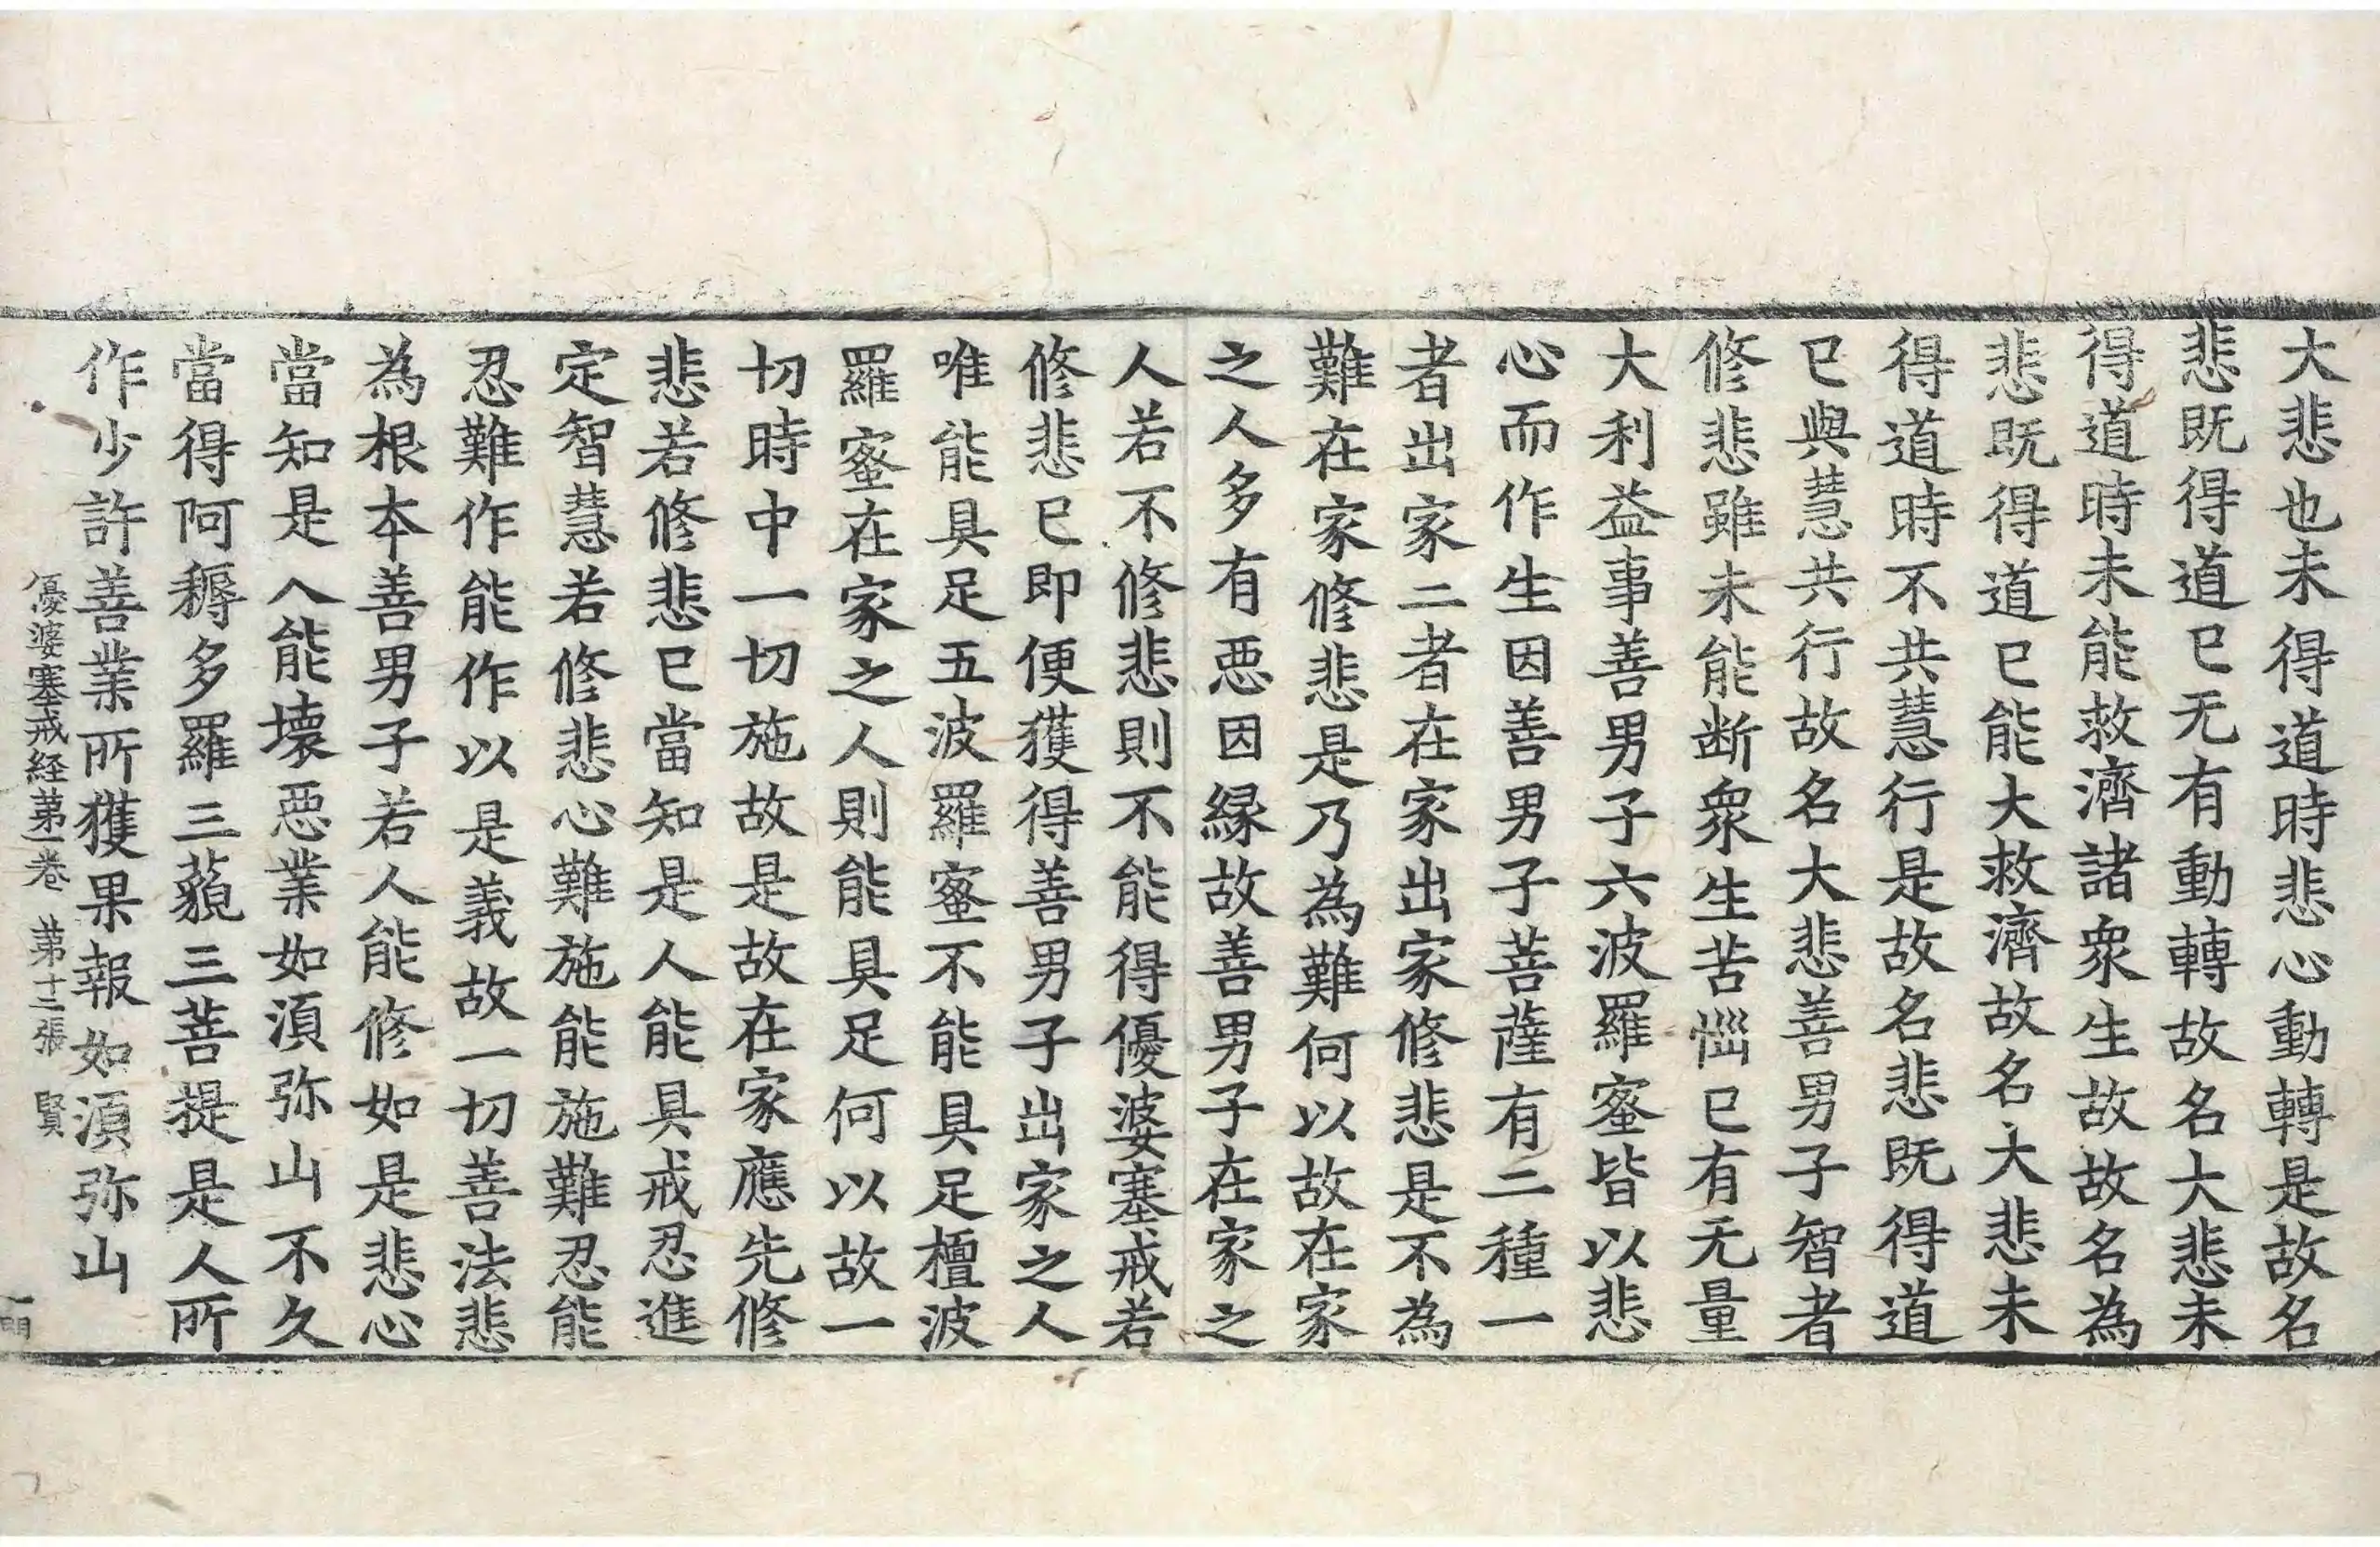 大悲也未得道時悲心動轉是故名
悲既得道已无有動轉故名大悲未
得道時未能救濟諸衆生故故名為
悲既得道已能大救濟故名大悲未
得道時不共慧行是故名悲既得道
已與慧共行故名大悲善男子智者
修悲雖未能断衆生苦惱已有无量
大利益事善男子六波羅蜜皆以悲
心而作生因善男子菩薩有二種一
者出家二者在家出家修悲是不為
難在家修悲是乃為難何以故在家
之人多有惡因縁故善男子在家之
人若不修悲則不能得優婆塞戒若
修悲已即便獲得善男子出家之人
唯能具足五波羅蜜不能具足檀波
羅蜜在家之人則能具足何以故一
切時中一切施故是故在家應先修
悲若修悲已當知是人能具戒忍進
定智慧若修悲心難施能施難忍能
忍難作能作以是義故一切善法悲
為根本善男子若人能修如是悲心
當知是人能壞惡業如湏弥山不久
當得阿耨多羅三藐三菩提是人所
作少許善業所獲果報如湏弥山
優婆塞戒経第一卷 第十二張 賢